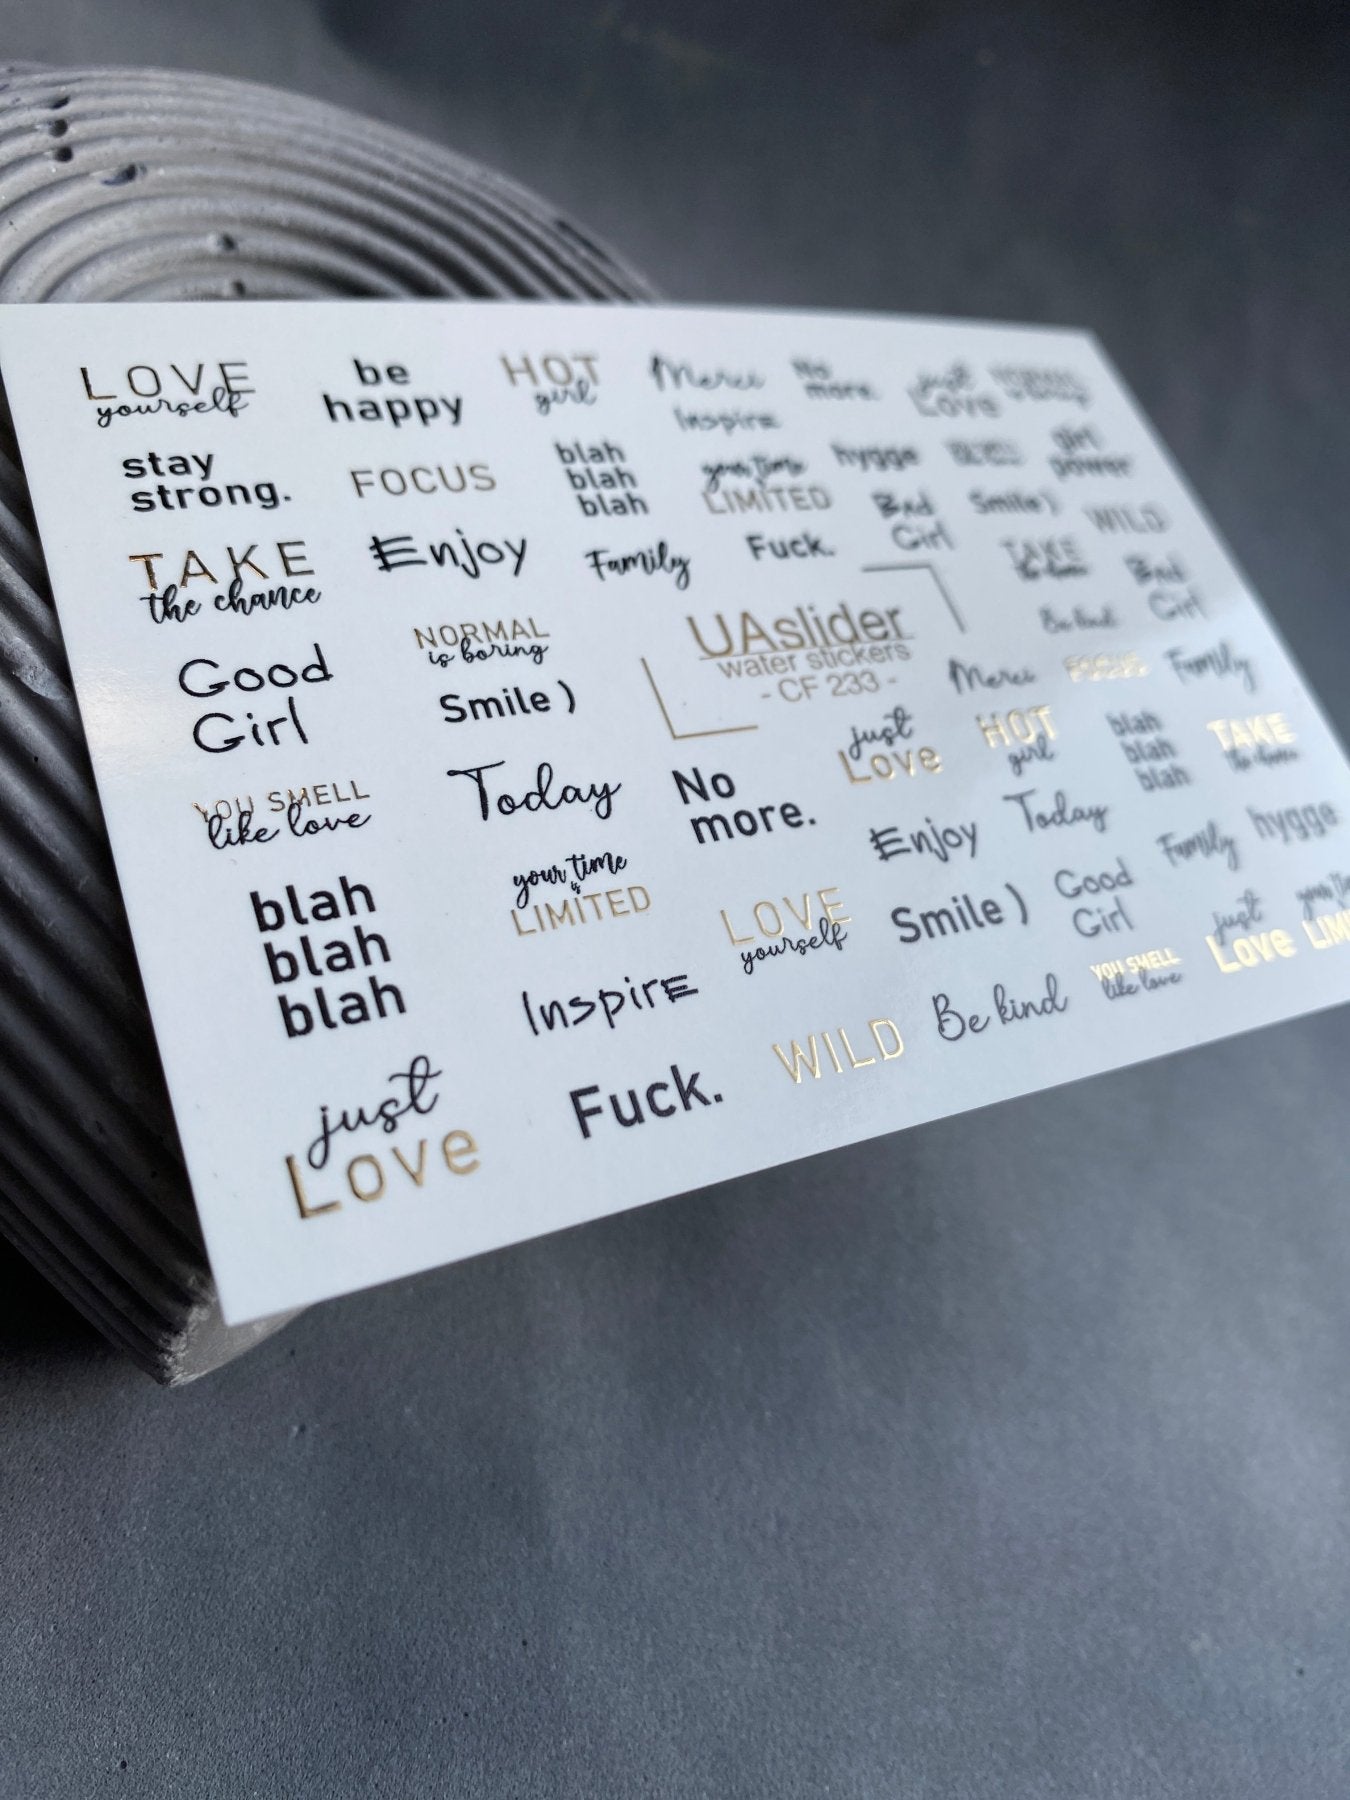 LOVE
yourself
be
happy
HOT
girl
Merci
No
more.
just
Love
NORMAL
Inspire
stay
strong.
FOCUS
blah
blah
blah
your time
LIMITED
hygge
girl
power
TAKE
the chance
Enjoy
Family
Fuck.
Bad
Girl
Smile )
WILD
TAKE
the chance
Bad
Girl
Be kind
Good
Girl
NORMAL
is boring
UAslider
water stickers
- CF 233 -
Smile )
Merci
FOCUS
Family
YOU SMELL
like love
Today
No
more.
just
Love
HOT
girl
blah
blah
blah
TAKE
the chance
blah
blah
blah
your time
is
LIMITED
LOVE
yourself
Enjoy
Today
Family
hygge
Smile )
Good
Girl
just
Love
your tim
LIMI
Inspire
WILD
Be kind
YOU SMELL
like love
just
Love
Fuck.